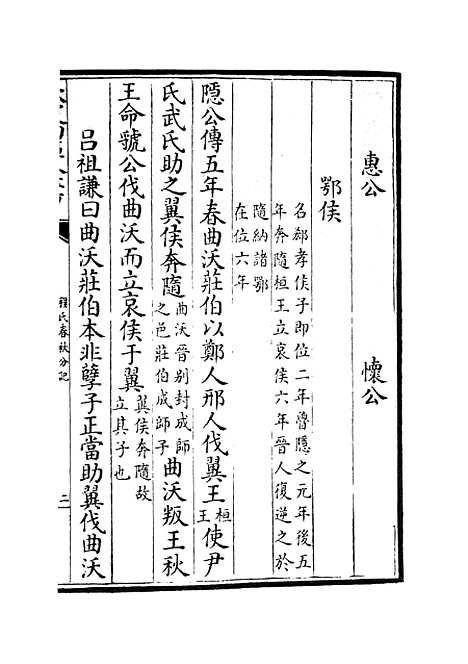 惠公　懷公
鄂侯
名郄孝侯子即位二年魯隱之元年後五
年奔隨桓王立哀侯六年晉人復逆之於
隨納諸鄂
在位六年
隱公傳五年春曲沃莊伯以鄭人邢人伐翼王桓王使尹
氏武氏助之翼侯奔隨曲沃晉别封成師之邑莊伯成師子曲沃叛王秋
王命虢公伐曲沃而立哀侯于翼翼侯奔隨故立其子也
呂祖謙曰曲沃莊伯本非孽子正當助翼伐曲沃
程氏春秋分記
二